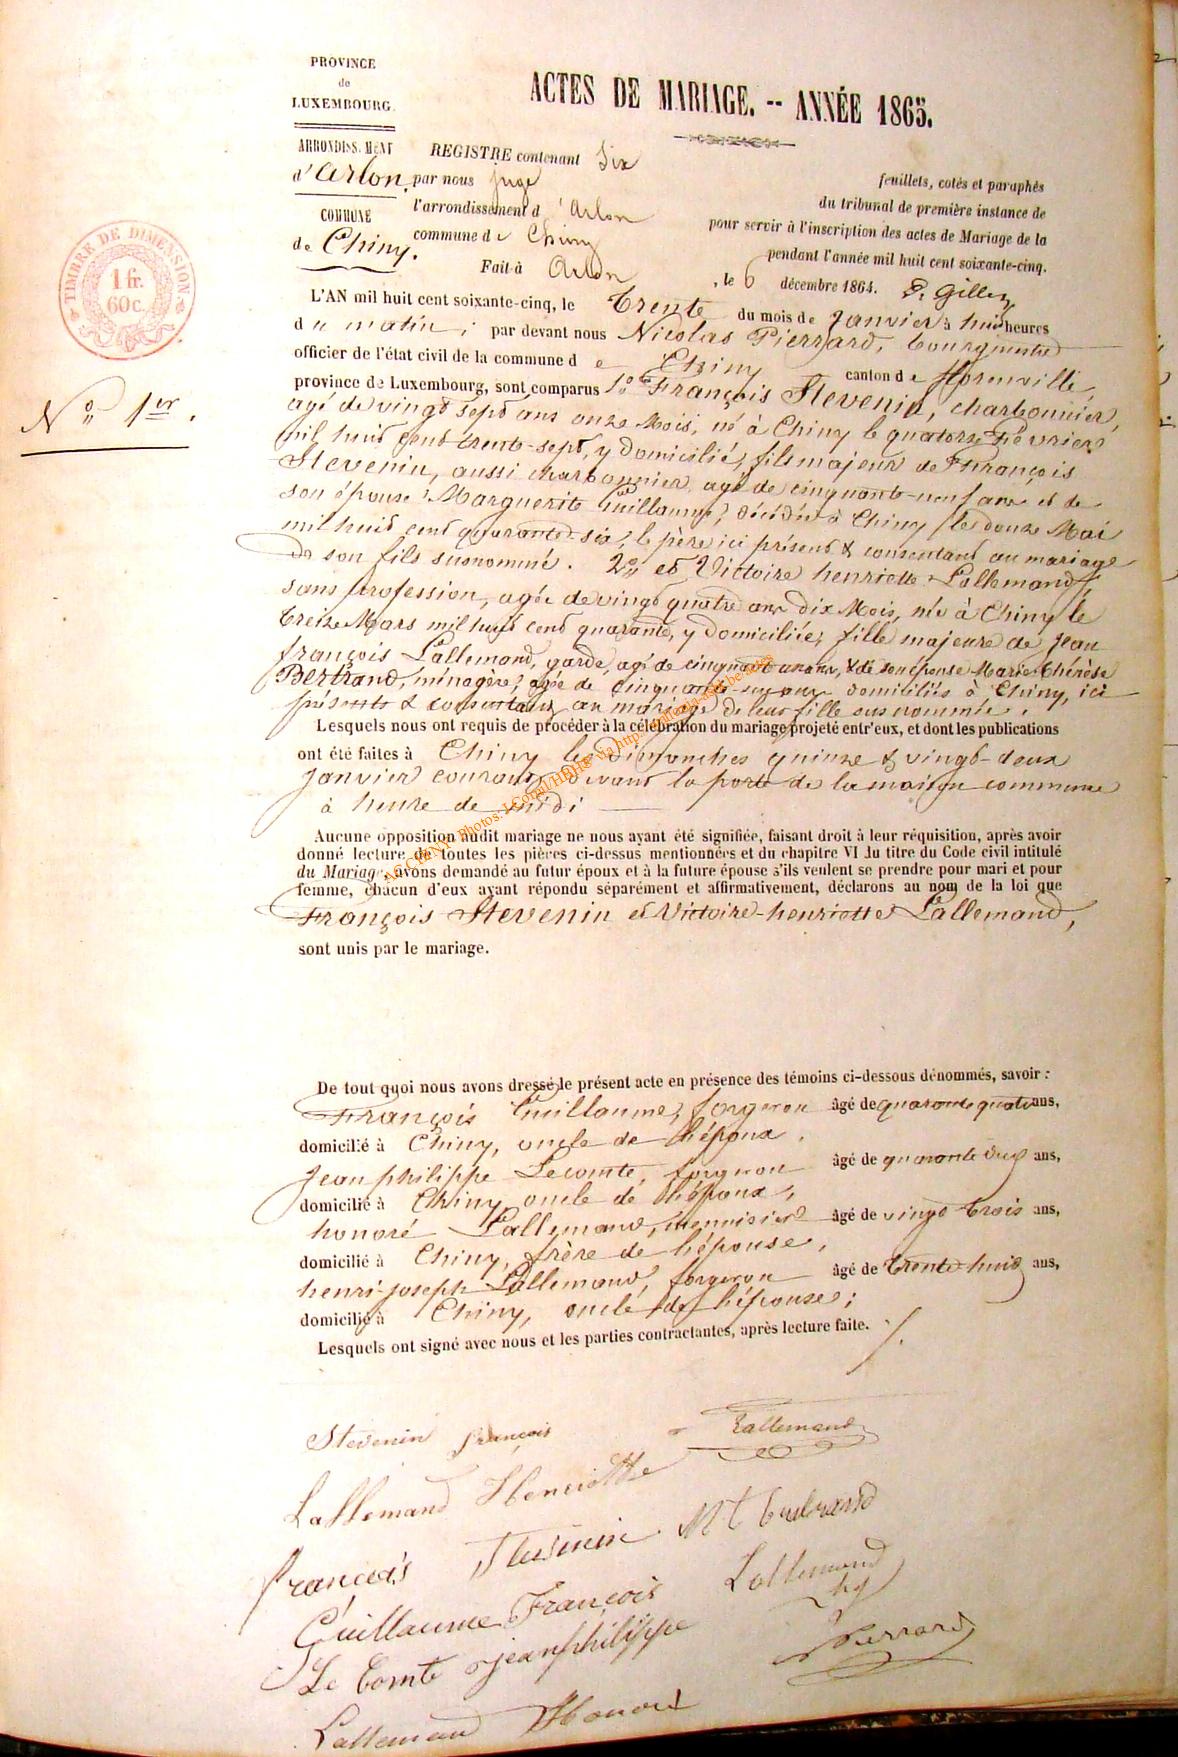 PROVINCE
de
LUXEMBOURG.
ACTES DE MARIAGE. -- ANNÉE 1865.
ARRONDISSEMENT
d'Arlon.
COMMUNE
de Chiny.
REGISTRE contenant Six feuillets, cotés et paraphés
par nous juge du tribunal de première instance de
l'arrondissement d'Arlon pour servir à l'inscription des actes de Mariage de la
commune de Chiny pendant l'année mil huit cent soixante-cinq.
Fait à Arlon, le 6 décembre 1864.
TIMBRE DE DIMENSION
1 fr.
60 c.
No 1er.
L'AN mil huit cent soixante-cinq, le trente du mois de janvier à huit heures
du matin; par devant nous Nicolas Pierrard, bourgmestre
officier de l'état civil de la commune de Chiny canton de florenville,
province de Luxembourg, sont comparus 1o François Stevenin, charbonnier,
agé de vingt sept ans onze Mois, né à Chiny le quatorze février
mil huit cent trente-sept, y domicilié, fils majeur de François
Stevenin, aussi charbonnier agé de cinquante-neuf ans et de
son épouse Marguerite Guillaume, décédée à Chiny le douze Mai
mil huit cent quarante-six, le père ici présent & consentant au mariage
de son fils susnommé. 2o et Victoire henriette Lallemand,
sans profession, agée de vingt quatre ans dix Mois, née à Chiny le
treize Mars mil huit cent quarante, y domiciliée, fille majeure de jean
françois Lallemand, garde, agé de cinquante ans, & de son épouse Marie-Thérèse
Bertrand, ménagère, agée de cinquante ans domiciliés à Chiny, ici
présents & consentans au mariage de leur fille susnommée.
Lesquels nous ont requis de procéder à la célébration du mariage projeté entr'eux, et dont les publications
ont été faites à Chiny les dimanches quinze & vingt-deux
janvier courant, devant la porte de la maison commune
à heure de midi
Aucune opposition audit mariage ne nous ayant été signifiée, faisant droit à leur réquisition, après avoir
donné lecture de toutes les pièces ci-dessus mentionnées et du chapitre VI du titre du Code civil intitulé
du Mariage, avons demandé au futur époux et à la future épouse s'ils veulent se prendre pour mari et pour
femme, chacun d'eux ayant répondu séparément et affirmativement, déclarons au nom de la loi que
François Stevenin et Victoire-henriette Lallemand,
sont unis par le mariage.
De tout quoi nous avons dressé le présent acte en présence des témoins ci-dessous dénommés, savoir :
François Guillaume, forgeron âgé de quarante quatre ans,
domicilié à Chiny, oncle de l'époux,
Jean philippe Lecomte, forgeron âgé de quarante ans,
domicilié à Chiny oncle de l'époux,
honoré Lallemand, menuisier âgé de vingt trois ans,
domicilié à Chiny, frère de l'épouse,
henri-joseph Lallemand, forgeron âgé de trente-huit ans,
domicilié à Chiny, oncle de l'épouse;
Lesquels ont signé avec nous et les parties contractantes, après lecture faite.
Stevenin françois Lallemand
Lallemand Henriette
François Stevenin Mt bertrand
Guillaume François Lallemand hj
Le Comte jeanphilippe Pierrard
Lallemand Honoré